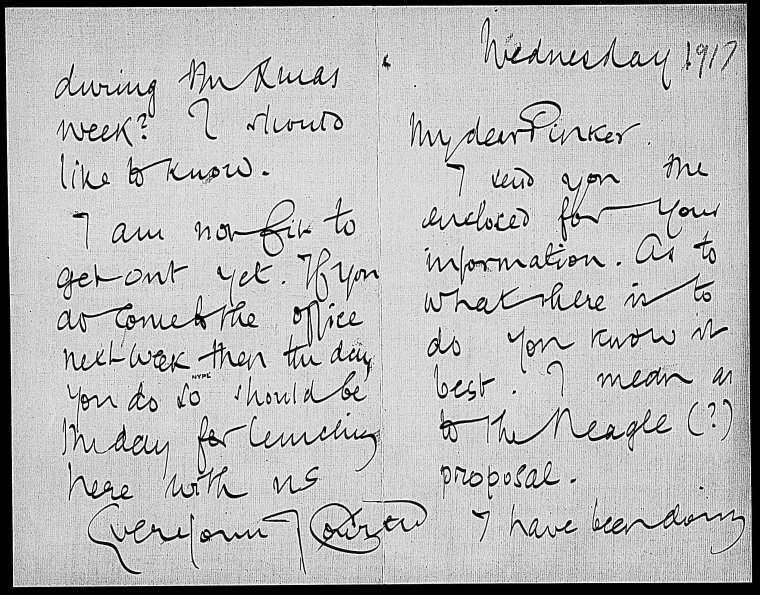 Wednesday 1917
My dear Pinker.
I send you the
enclosed for your
information. As to
what there is to
do you know it
best. I mean as
to the Neagle (?)
proposal.
I have been doing
during the Xmas
week? I should
like to know.
I am not fit to
get out yet. If you
do come to the office
next week then the day
NYPL
you do so should be
the day for lunching
here with us
Ever yours J Conrad